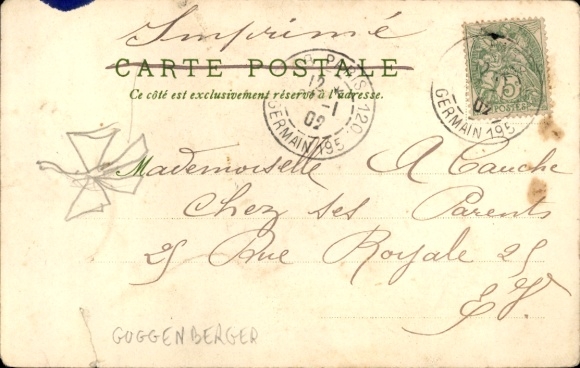 Imprimé
CARTE POSTALE
Ce côté est exclusivement réservé à l'adresse.
PARIS 120
12
-1
02
GERMAIN 195
5
POSTES
02
GERMAIN 195
Mademoiselle A Cauche
Chez ses Parents
25 Rue Royale 25
E.V.
GUGGENBERGER